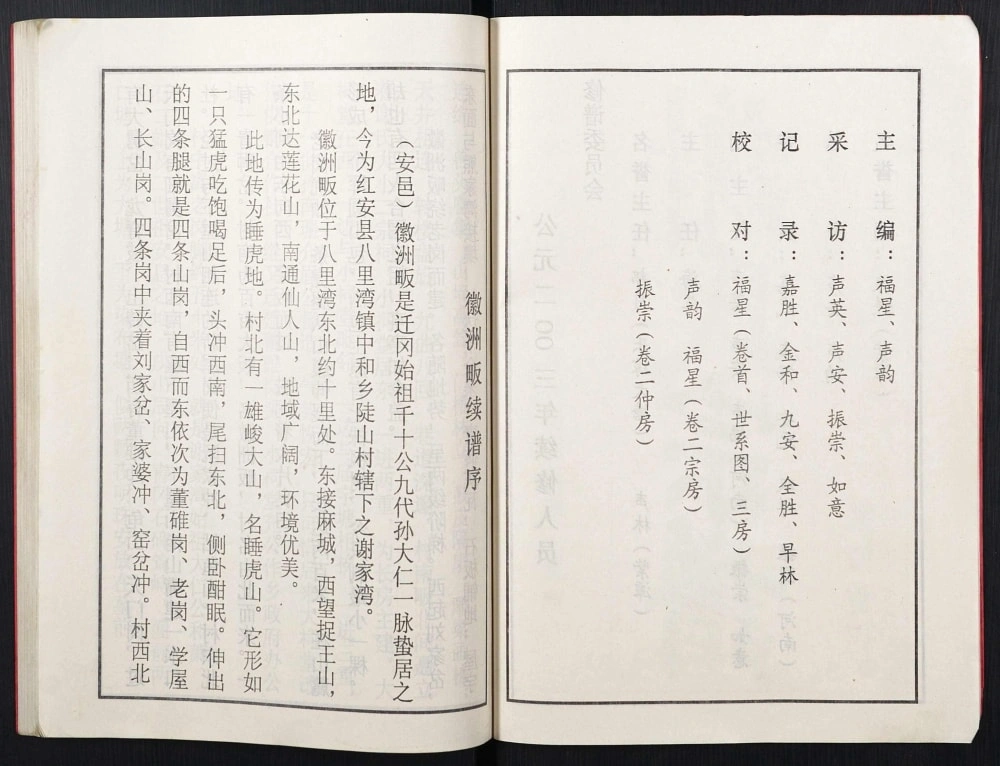 主编：福星、声韵
采访：声英、声安、振崇、如意
记录：嘉胜、金和、九安、全胜、早林
校对：福星（卷首、世系图、三房）
声韵　福星（卷二宗房）
振崇（卷二仲房）
徽洲畈续谱序
（安邑）徽洲畈是迁冈始祖千十公九代孙大仁一脉蛰居之
地，今为红安县八里湾镇中和乡陡山村辖下之谢家湾。
徽洲畈位于八里湾东北约十里处。东接麻城，西望捉王山，
东北达莲花山，南通仙人山，地域广阔，环境优美。
此地传为睡虎地。村北有一雄峻大山，名睡虎山。它形如
一只猛虎吃饱喝足后，头冲西南，尾扫东北，侧卧酣眠。伸出
的四条腿就是四条山岗，自西而东依次为董碓岗、老岗、学屋
山、长山岗。四条岗中夹着刘家岔、家婆冲、窑岔冲。村西北